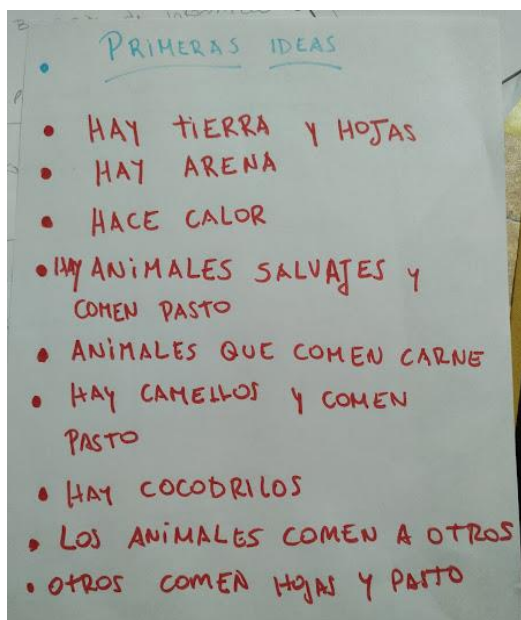 • PRIMERAS IDEAS
• HAY TIERRA Y HOJAS
• HAY ARENA
• HACE CALOR
• HAY ANIMALES SALVAJES Y
COMEN PASTO
• ANIMALES QUE COMEN CARNE
• HAY CAMELLOS Y COMEN
PASTO
• HAY COCODRILOS
• LOS ANIMALES COMEN A OTROS
• OTROS COMEN HOJAS Y PASTO